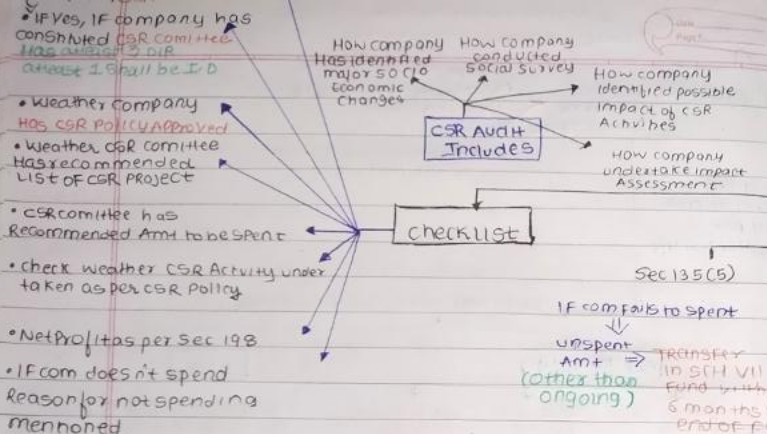 • IF Yes, IF company has
constituted CSR comittee
Has atleast 3 DIR
atleast 1 shall be I/D
• Weather company
Has CSR POLICY Approved
• Weather CSR comittee
Has recommended
LIST OF CSR PROJECT
• CSR comittee has
Recommended Amt to be spent
• check weather CSR Actvity under
taken as per CSR Policy
• Net Profit as per Sec 198
• IF com does n't spend
Reason for not spending
mentioned
How company
Has identified
major socio
Economic
changes
How company
conducted
Social Survey
How company
identified possible
impact of CSR
Activities
How company
undertake impact
Assessment
CSR Audit
Includes
checklist
Sec 135(5)
IF com fails to spent
unspent
Amt
(other than
ongoing)
TRANSFER
in SCH VII
Fund with
6 months
end of F